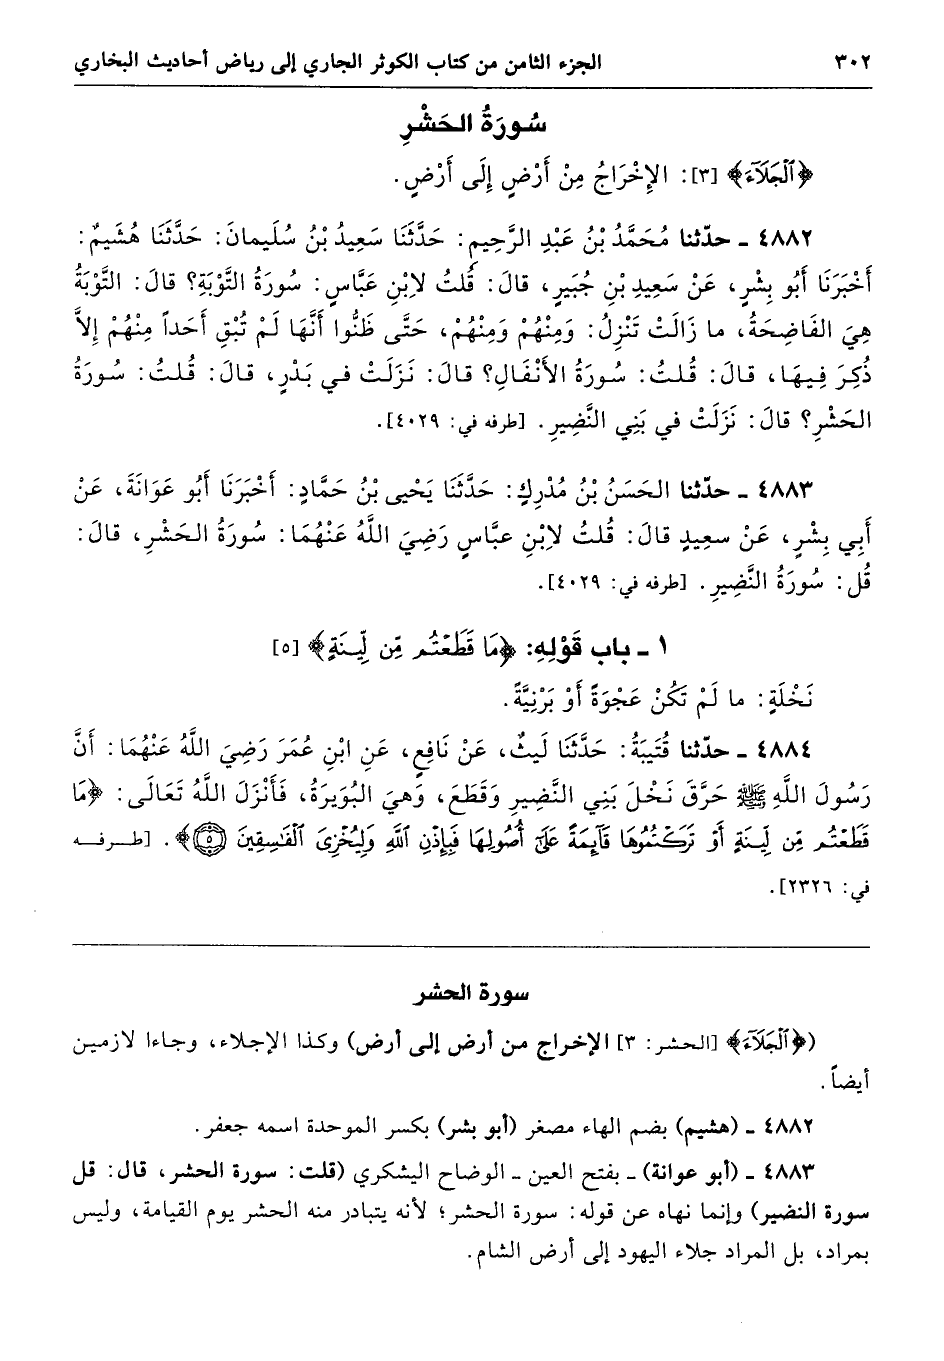 ٣٠٢ الجزء الثامن من كتاب الكوثر الجاري إلى رياض أحاديث البخاري
سُورَةُ الحَشْرِ
﴿ٱلْجَلَآءَ﴾ [٣]: الإِخْرَاجُ مِنْ أَرْضٍ إِلَى أَرْضٍ.
٤٨٨٢ ـ حدّثنا مُحَمَّدُ بْنُ عَبْدِ الرَّحِيمِ: حَدَّثَنَا سَعِيدُ بْنُ سُلَيمانَ: حَدَّثَنَا هُشَيمٌ:
أَخْبَرَنَا أَبُو بِشْرٍ، عَنْ سَعِيدِ بْنِ جُبَيرٍ، قالَ: قُلتُ لاِبْنِ عَبَّاسٍ: سُورَةُ التَّوْبَةِ؟ قالَ: التَّوْبَةُ
هِيَ الفَاضِحَةُ، ما زَالَتْ تَنْزِلُ: وَمِنْهُمْ وَمِنْهُمْ، حَتَّى ظَنُّوا أَنَّهَا لَمْ تُبْقِ أَحَداً مِنْهُمْ إِلاَّ
ذُكِرَ فِيهَا، قالَ: قُلتُ: سُورَةُ الأَنْفَالِ؟ قالَ: نَزَلَتْ في بَدْرٍ، قالَ: قُلتُ: سُورَةُ
الحَشْرِ؟ قالَ: نَزَلَتْ في بَنِي النَّضِيرِ. [طرفه في: ٤٠٢٩].
٤٨٨٣ ـ حدّثنا الحَسَنُ بْنُ مُدْرِكٍ: حَدَّثَنَا يَحْيى بْنُ حَمَّادٍ: أَخْبَرَنَا أَبُو عَوَانَةَ، عَنْ
أَبِي بِشْرٍ، عَنْ سعِيدٍ قالَ: قُلتُ لاِبْنِ عبَّاسٍ رَضِيَ اللَّهُ عَنْهُمَا: سُورَةُ الحَشْرِ، قالَ:
قُل: سُورَةُ النَّضِيرِ. [طرفه في: ٤٠٢٩].
١ ـ باب قَوْلِهِ: ﴿مَا قَطَعْتُم مِّن لِّينَةٍ﴾ [٥]
نَخْلَةٍ: ما لَمْ تَكُنْ عَجْوَةً أَوْ بَرْنِيَّةً.
٤٨٨٤ ـ حدّثنا قُتَيبَةُ: حَدَّثَنَا لَيثٌ، عَنْ نَافِعٍ، عَنِ ابْنِ عُمَرَ رَضِيَ اللَّهُ عَنْهُمَا: أَنَّ
رَسُولَ اللَّهِ ﷺ حَرَّقَ نَخْلَ بَنِي النَّضِيرِ وَقَطَعَ، وَهيَ البُوَيرَةُ، فَأَنْزَلَ اللَّهُ تَعَالَى: ﴿مَا
قَطَعْتُم مِّن لِّينَةٍ أَوْ تَرَكْتُمُوهَا قَآئِمَةً عَلَىٰٓ أُصُولِهَا فَبِإِذْنِ ٱللَّهِ وَلِيُخْزِىَ ٱلْفَٰسِقِينَ ۝٥﴾. [طرفه
في: ٢٣٢٦].
سورة الحشر
(﴿ٱلْجَلَآءَ﴾ [الحشر: ٣] الإخراج من أرض إلى أرض) وكذا الإجلاء، وجاءا لازمين
أيضاً.
٤٨٨٢ ـ (هشيم) بضم الهاء مصغر (أبو بشر) بكسر الموحدة اسمه جعفر.
٤٨٨٣ ـ (أبو عوانة) ـ بفتح العين ـ الوضاح اليشكري (قلت: سورة الحشر، قال: قل
سورة النضير) وإنما نهاه عن قوله: سورة الحشر؛ لأنه يتبادر منه الحشر يوم القيامة، وليس
بمراد، بل المراد جلاء اليهود إلى أرض الشام.